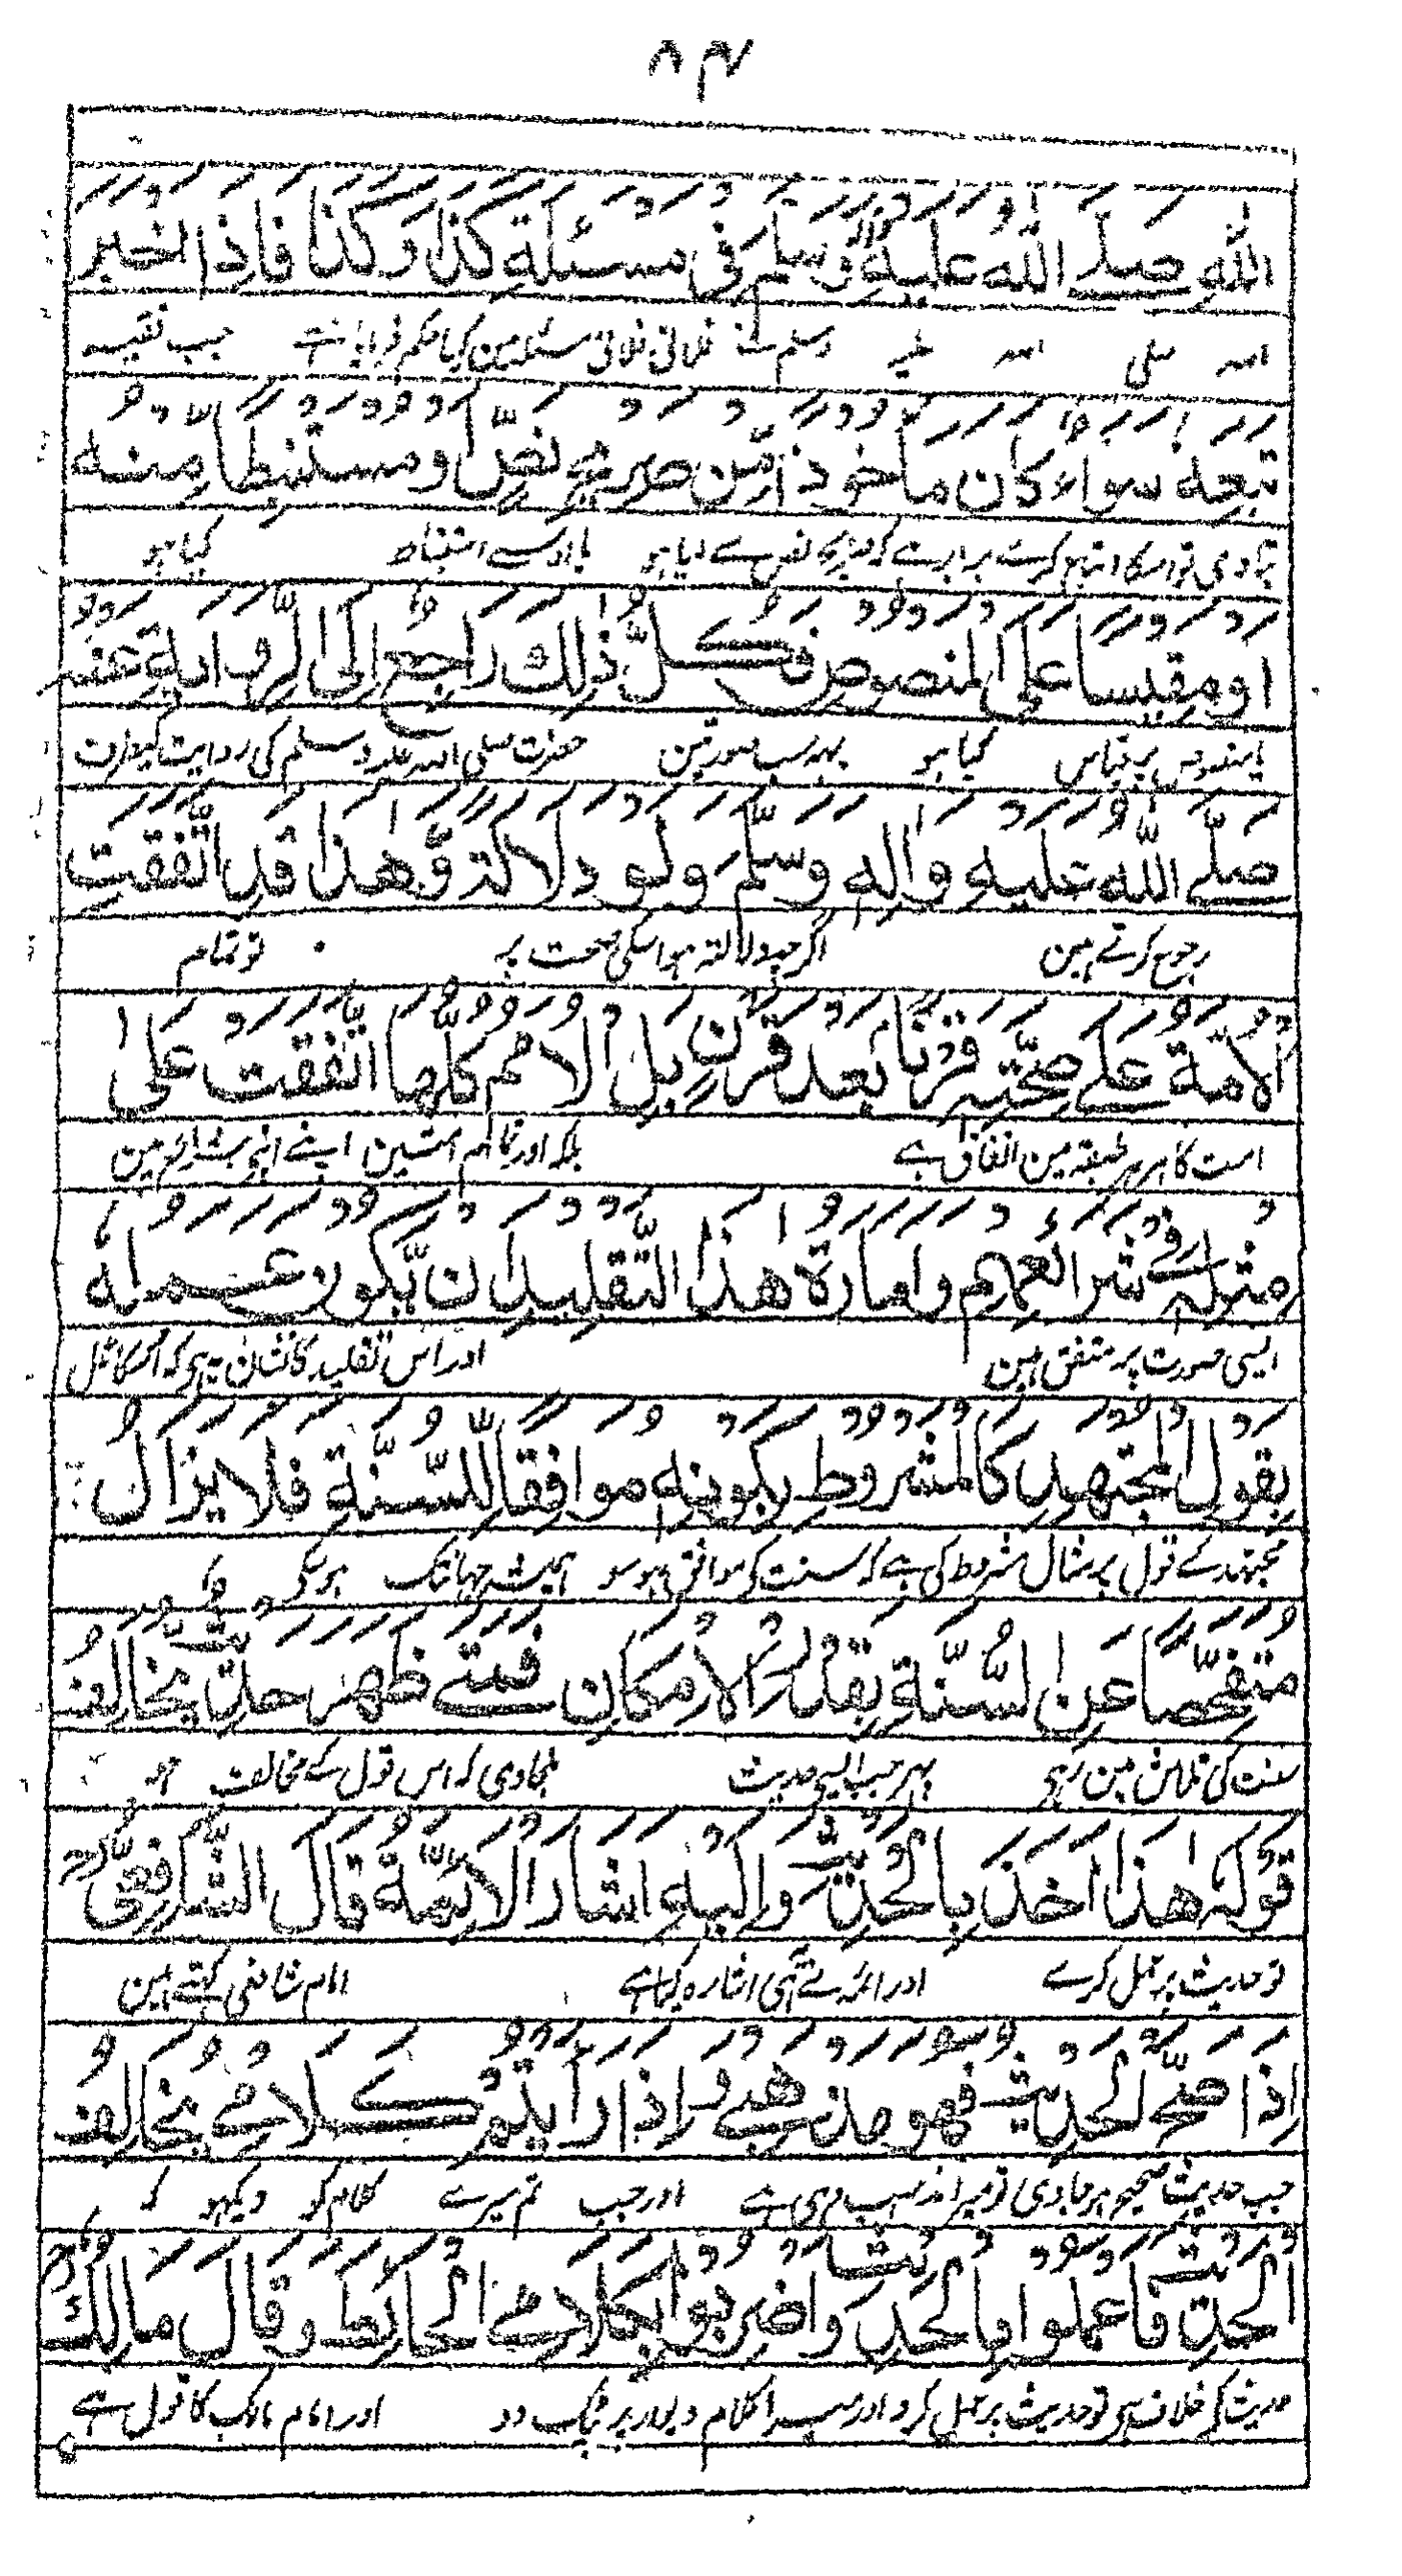 ۸۴
اللهِ صلے الله عليه واله وسلم في مسئلة كذا وكذا فاذا اخبر
الله صلی الله علیہ وسلم نے فلانی فلانی مسئلہ مین کیا حکم فرمایا ہے جب فقیہ
تبعه سواء كان ماخوذا من صريح نص او مستنبطا منه
بتادی تو اسکا اتباع کرے برابر ہے کہ صریح نص سے لیا ہو یا اوس سے استنباط کیا ہو
او مقيسا على المنصوص فكل ذلك راجع الى الرواية عنه
یا منصوص پر قیاس کیا ہو یہہ سب صورتین حضرت صلی اللہ علیہ وسلم کی روایت کیطرف
صلے الله عليه واله وسلم ولو دلالة وهذا قد اتفقت
رجوع کرتے ہین اگرچہ دلالتہ ہو اسکی صحت پر تو تمام
الامة على صحته قرنا بعد قرن بل الامم كلها اتفقت على
امت کا ہر ہر طبقہ مین اتفاق ہے بلکہ اور تمام امتین اپنے اپنے شرایع مین
مثله في شرائعهم وامارة هذا التقليد ان يكون عمله
ایسی صورت پر متفق ہین اور اس تقلید کا نشان یہ ہی کہ اسکا عمل
بقول المجتهد كالمشروط بكونه موافقا للسنة فلا يزال
مجتہد کے قول پر مثال مشروط کی ہے کہ سنت کی موافق ہو سو ہمیشہ جہانتک ہو سکے
متفحصا عن السنة بقدر الامكان فمتى ظهر حديث يخالف
سنت کی تلاش مین رہی پہر جب ایسی حدیث ملجاوی کہ اس قول کے مخالف ہو
قوله هذا اخذ بالحديث واليه اشار الائمة قال الشافعي
تو حدیث پر عمل کرے اور ائمہ نے یہی اشارہ کیا ہے امام شافعی کہتے ہین
اذا صح الحديث فهو مذهبي واذا رايتم كلامي يخالف
جب حدیث صحیح ہو جاوی تو میرا مذہب وہی ہے اور جب تم میرے کلام کو دیکہو کہ
الحديث فاعملوا بالحديث واضربوا بكلامي الحائط وقال مالك
حدیث کے خلاف ہی تو حدیث پر عمل کرو اور میرا کلام دیوار پر پٹک دو اور امام مالک کا قول ہے